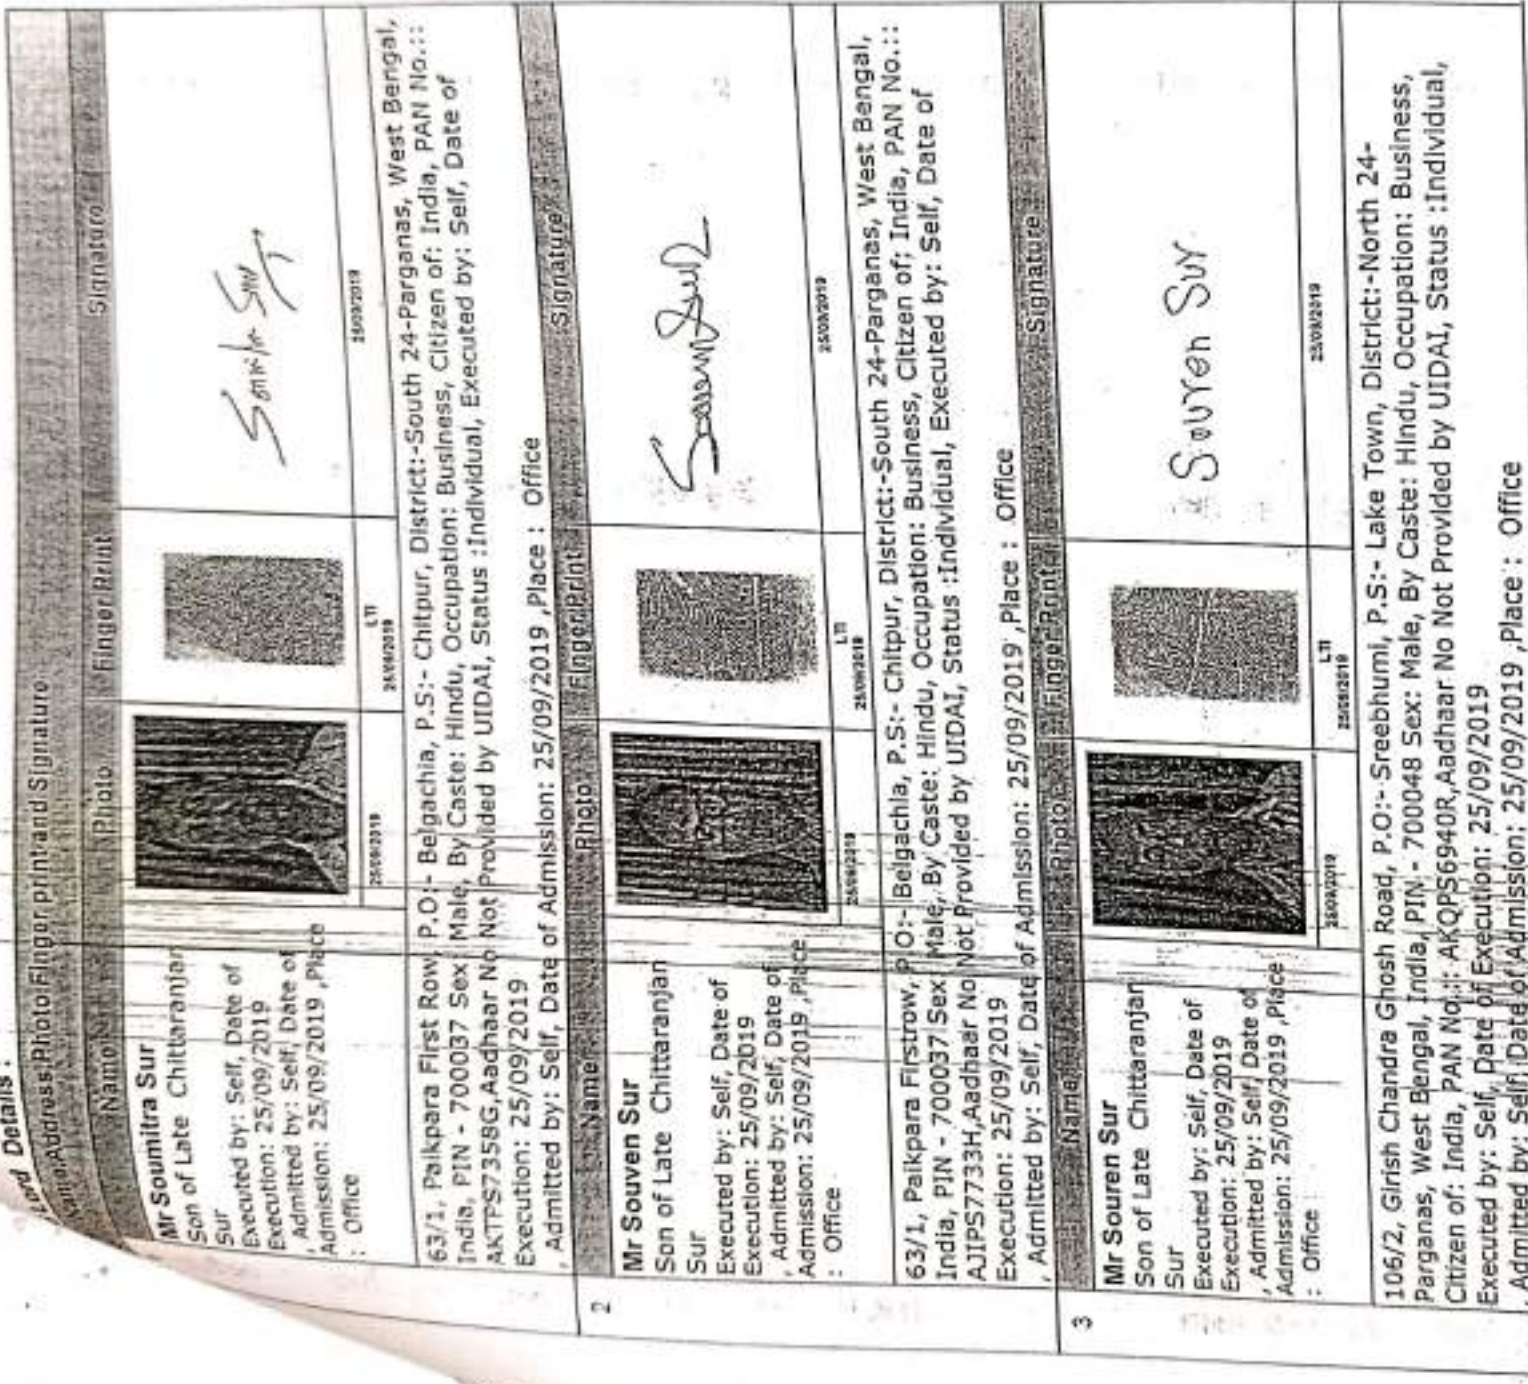 Lord Details :
Name,Address,Photo,Finger print and Signature
Name Photo Finger Print Signature
Mr Soumitra Sur
Son of Late Chittaranjan
Sur
Executed by: Self, Date of
Execution: 25/09/2019
, Admitted by: Self, Date of
Admission: 25/09/2019 ,Place
: Office
25/09/2019
LTI
25/09/2019
25/09/2019
63/1, Paikpara First Row, P.O:- Belgachia, P.S:- Chitpur, District:-South 24-Parganas, West Bengal,
India, PIN - 700037 Sex: Male, By Caste: Hindu, Occupation: Business, Citizen of: India, PAN No.::
AKTPS7358G,Aadhaar No Not Provided by UIDAI, Status :Individual, Executed by: Self, Date of
Execution: 25/09/2019
, Admitted by: Self, Date of Admission: 25/09/2019 ,Place : Office
2
Name Photo Finger Print Signature
Mr Souven Sur
Son of Late Chittaranjan
Sur
Executed by: Self, Date of
Execution: 25/09/2019
, Admitted by: Self, Date of
Admission: 25/09/2019 ,Place
: Office
25/09/2019
LTI
25/09/2019
25/09/2019
63/1, Paikpara Firstrow, P.O:- Belgachia, P.S:- Chitpur, District:-South 24-Parganas, West Bengal,
India, PIN - 700037 Sex: Male, By Caste: Hindu, Occupation: Business, Citizen of: India, PAN No.::
AJIPS7733H,Aadhaar No Not Provided by UIDAI, Status :Individual, Executed by: Self, Date of
Execution: 25/09/2019
, Admitted by: Self, Date of Admission: 25/09/2019 ,Place : Office
3
Name Photo Finger Print Signature
Mr Souren Sur
Son of Late Chittaranjan
Sur
Executed by: Self, Date of
Execution: 25/09/2019
, Admitted by: Self, Date of
Admission: 25/09/2019 ,Place
: Office
Souren Sur
25/09/2019
LTI
25/09/2019
25/09/2019
106/2, Girish Chandra Ghosh Road, P.O:- Sreebhumi, P.S:- Lake Town, District:-North 24-
Parganas, West Bengal, India, PIN - 700048 Sex: Male, By Caste: Hindu, Occupation: Business,
Citizen of: India, PAN No.:: AKQPS6940R,Aadhaar No Not Provided by UIDAI, Status :Individual,
Executed by: Self, Date of Execution: 25/09/2019
, Admitted by: Self, Date of Admission: 25/09/2019 ,Place : Office